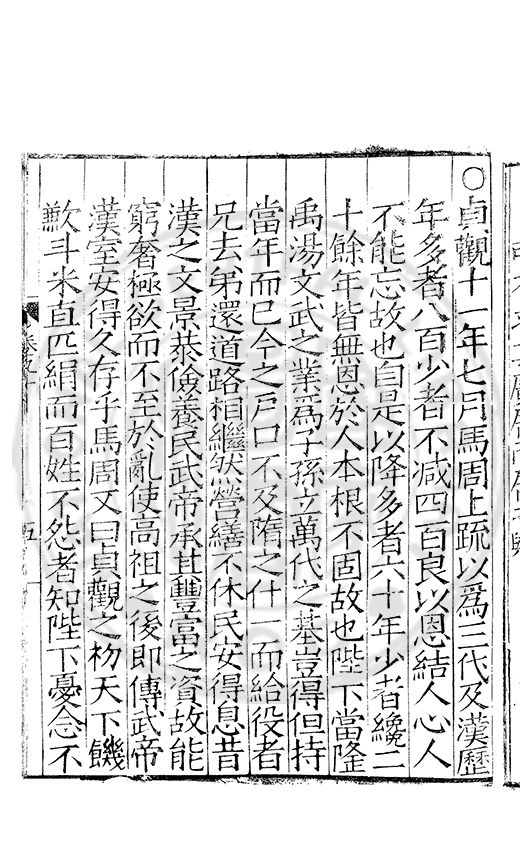 ○貞觀十一年七月馬周上疏以爲三代及漢歷
年多者八百少者不减四百良以恩結人心人
不能忘故也自是以降多者六十年少者纔二
十餘年皆無恩於人本根不固故也陛下當隆
禹湯文武之業爲子孫立萬代之基豈得但持
當年而已今之戶口不及隋之什一而給役者
兄去弟還道路相繼然營繕不休民安得息昔
漢之文景恭儉養民武帝承其豐富之資故能
窮奢極欲而不至於亂使高祖之後即傳武帝
漢室安得久存乎馬周又曰貞觀之初天下饑
歉斗米直匹絹而百姓不怨者知陛下憂念不
五